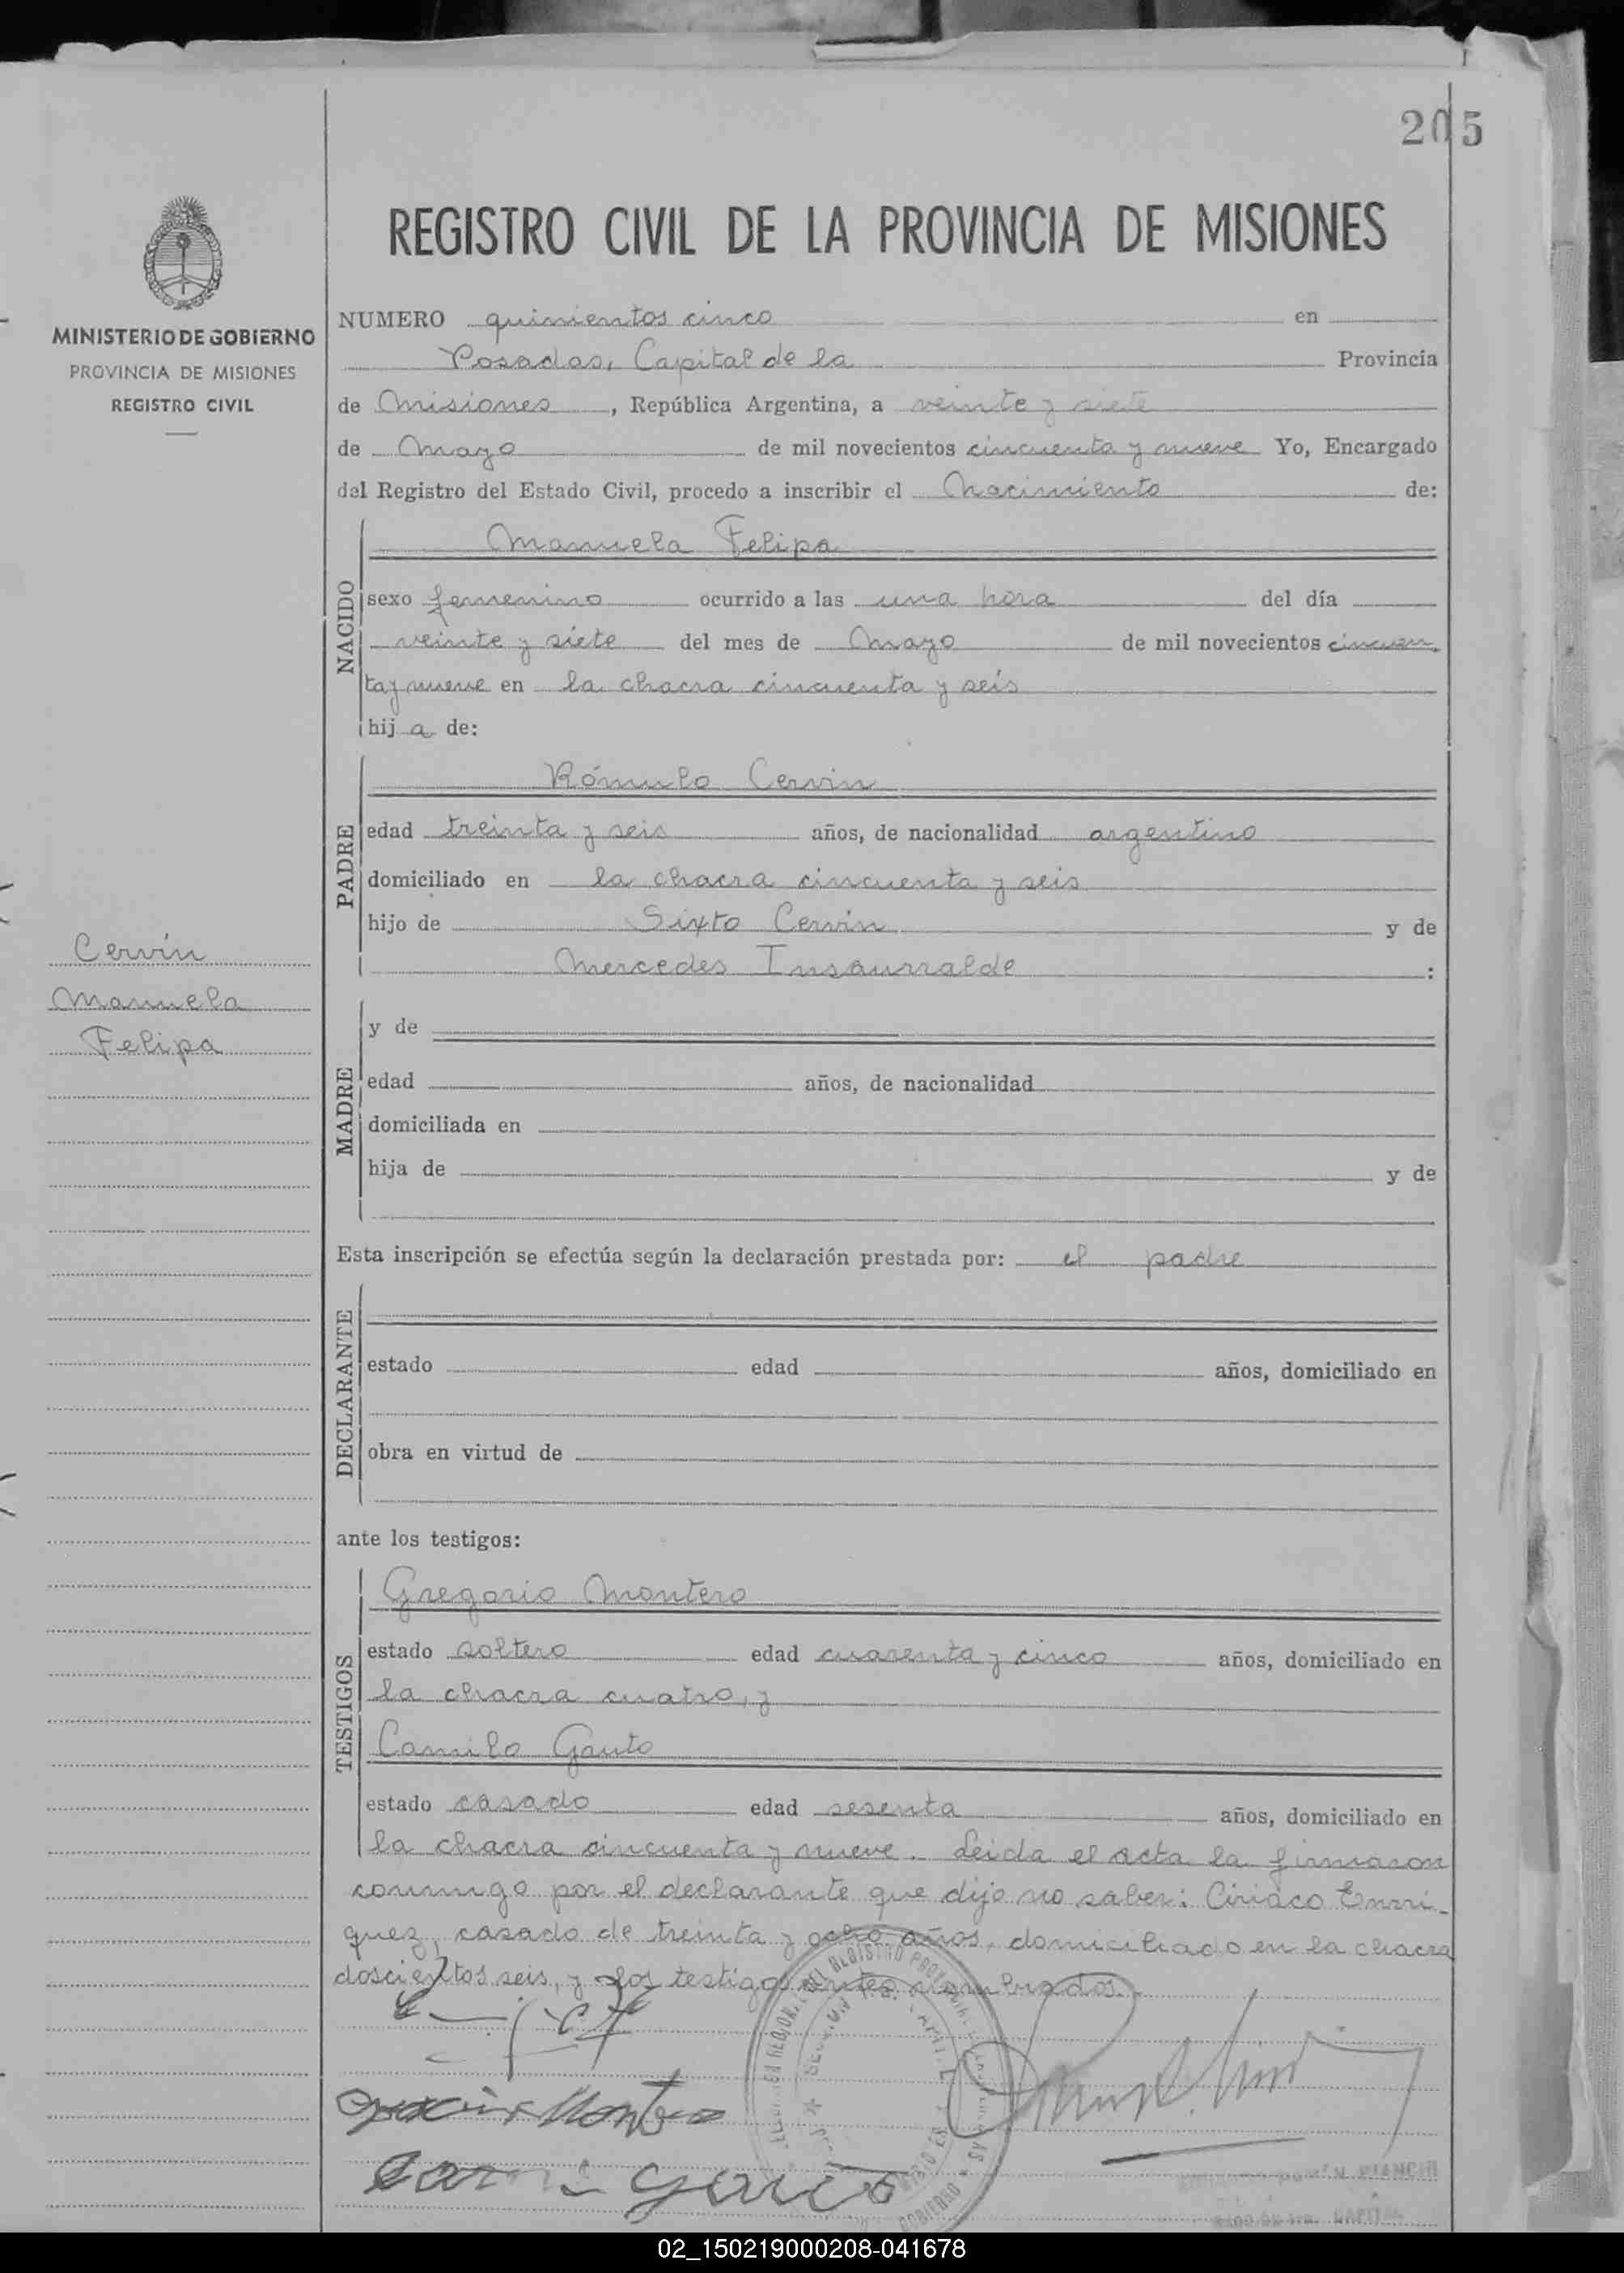 205
REGISTRO CIVIL DE LA PROVINCIA DE MISIONES
MINISTERIO DE GOBIERNO
PROVINCIA DE MISIONES
REGISTRO CIVIL
NUMERO quinientos cinco en
Posadas, Capital de la Provincia
de Misiones, República Argentina, a veinte y siete
de Mayo de mil novecientos cincuenta y nueve Yo, Encargado
del Registro del Estado Civil, procedo a inscribir el Nacimiento de:
NACIDO
Manuela Felipa
sexo femenino ocurrido a las una hora del día
veinte y siete del mes de Mayo de mil novecientos cincuen
ta y nueve en la chacra cincuenta y seis
hij a de:
PADRE
Rómulo Cervin
edad treinta y seis años, de nacionalidad argentino
domiciliado en la chacra cincuenta y seis
hijo de Sixto Cervin y de
Mercedes Insaurralde :
Cervín
Manuela
Felipa
MADRE
y de
edad años, de nacionalidad
domiciliada en
hija de y de
Esta inscripción se efectúa según la declaración prestada por: el padre
DECLARANTE
estado edad años, domiciliado en
obra en virtud de
ante los testigos:
TESTIGOS
Gregorio Montero
estado soltero edad cuarenta y cinco años, domiciliado en
la chacra cuatro, y
Camilo Gauto
estado casado edad sesenta años, domiciliado en
la chacra cincuenta y nueve. Leida el acta la firmaron
conmigo por el declarante que dijo no saber: Ciriaco Enrri-
quez, casado de treinta y ocho años, domiciliado en la chacra
doscientos seis, y los testigos antes nombrados.
Montero
Gauto
02_150219000208-041678